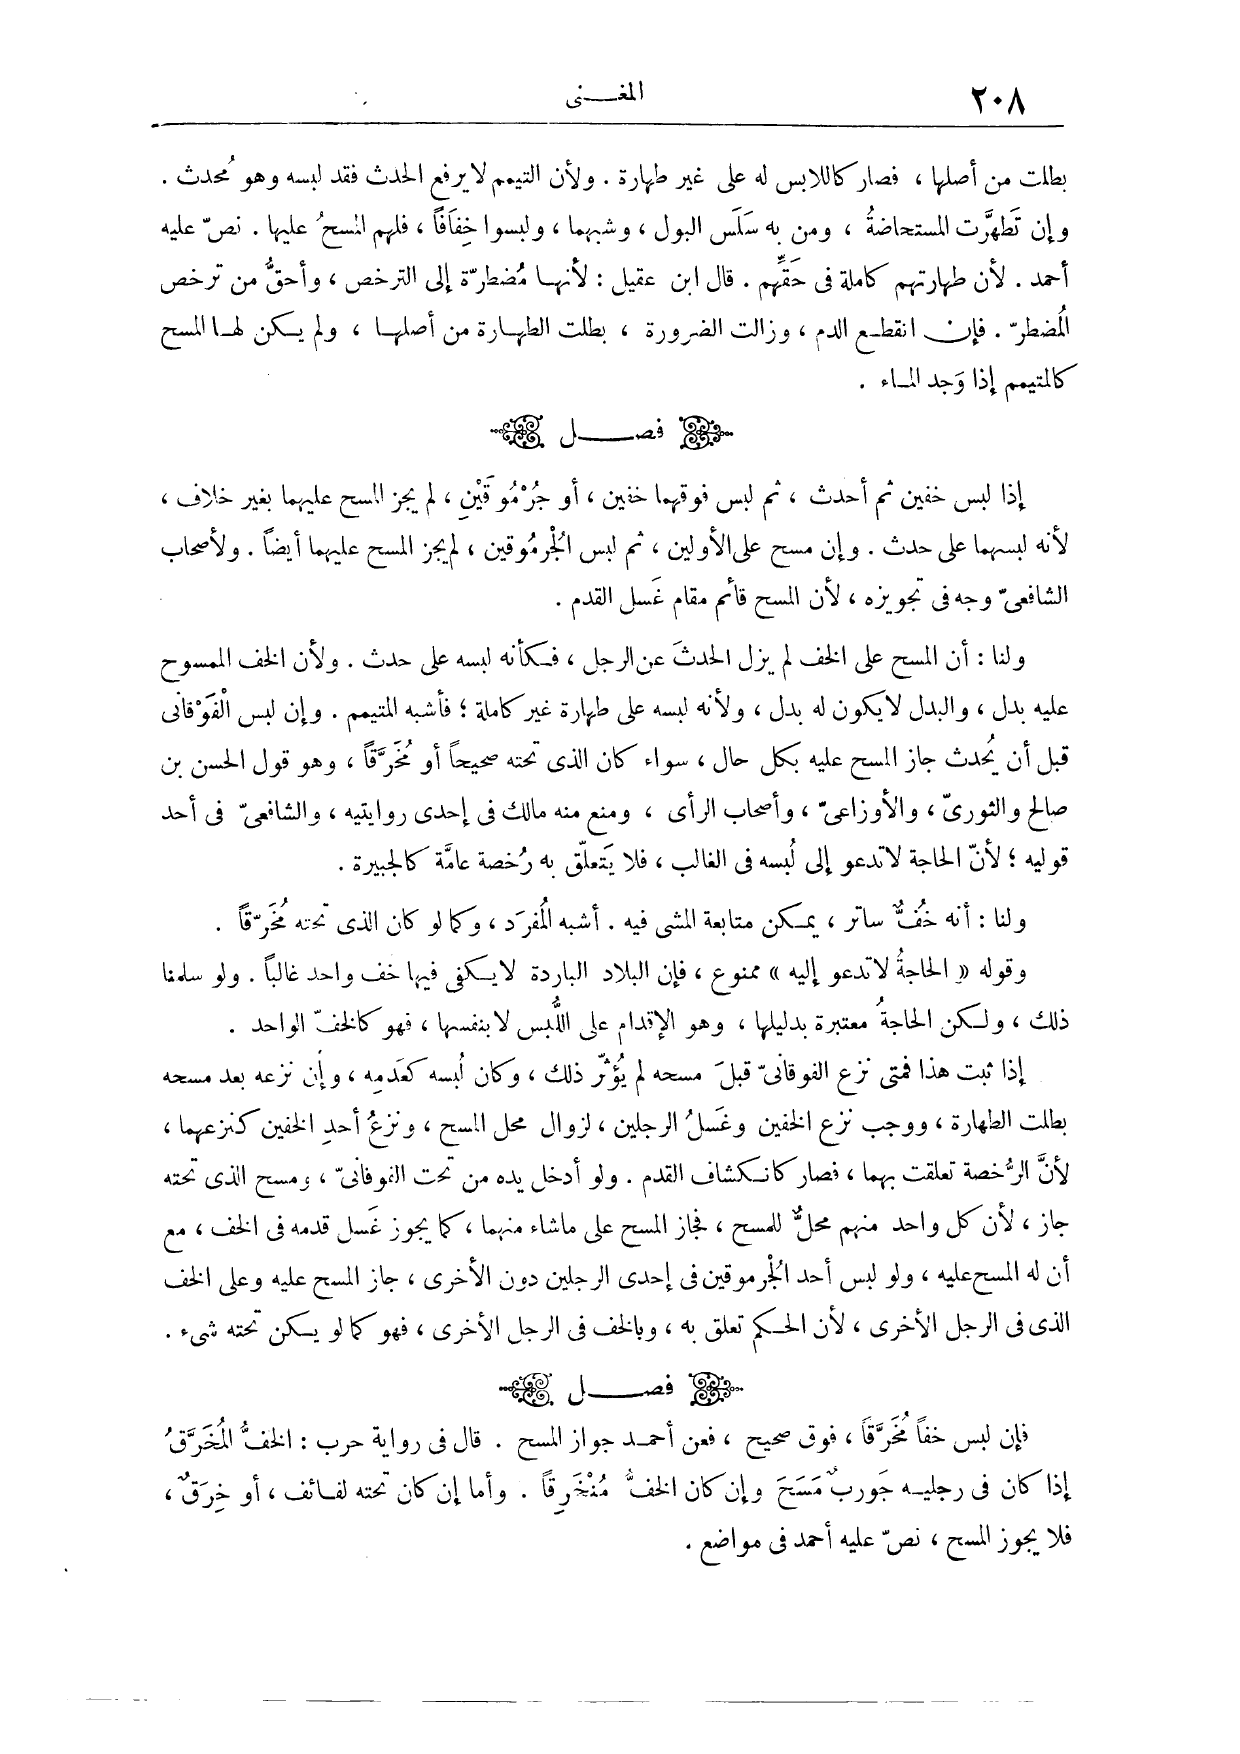 ٢٠٨
المغـــنى
بطلت من أصلها ، فصار كاللابس له على غير طهارة . ولأن التيمم لا يرفع الحدث فقد لبسه وهو مُحدث .
وإن تَطهَّرت المستحاضةُ ، ومن به سَلَس البول ، وشبهما ، ولبسوا خِفَافاً ، فلهم المسحُ عليها . نصّ عليه
أحمد . لأن طهارتهم كاملة فى حَقِّهم . قال ابن عقيل : لأنهـا مُضطرّة إلى الترخص ، وأحقُّ من ترخص
المُضطرّ . فإن انقطـع الدم ، وزالت الضرورة ، بطلت الطهـارة من أصلهـا ، ولم يـكن لهـا المسح
كالمتيمم إذا وَجد المـاء .
فصـــــل
إذا لبس خفين ثم أحدث ، ثم لبس فوقهما خفين ، أو جُرْمُوقَيْنِ ، لم يجز المسح عليهما بغير خلاف ،
لأنه لبسهما على حدث . وإن مسح على الأولين ، ثم لبس الجُرمُوقين ، لم يجز المسح عليهما أيضاً . ولأصحاب
الشافعىّ وجه فى تجويزه ، لأن المسح قائم مقام غَسل القدم .
ولنا : أن المسح على الخف لم يزل الحدثَ عن الرجل ، فـكأنه لبسه على حدث . ولأن الخف الممسوح
عليه بدل ، والبدل لا يكون له بدل ، ولأنه لبسه على طهارة غير كاملة ؛ فأشبه المتيمم . وإن لبس الْفَوْقانى
قبل أن يُحدث جاز المسح عليه بكل حال ، سواء كان الذى تحته صحيحاً أو مُخَرَّقاً ، وهو قول الحسن بن
صالح والثورىّ ، والأوزاعىّ ، وأصحاب الرأى ، ومنع منه مالك فى إحدى روايتيه ، والشافعىّ فى أحد
قوليه ؛ لأنّ الحاجة لا تدعو إلى لُبسه فى الغالب ، فلا يَتعلّق به رُخصة عامَّة كالجبيرة .
ولنا : أنه خُفٌّ ساتر ، يمـكن متابعة المشى فيه . أشبه المُفرَد ، وكما لو كان الذى تحته مُخَرّقاً .
وقوله « الحاجةُ لا تدعو إليه » ممنوع ، فإن البلاد الباردة لا يـكفى فيها خف واحد غالباً . ولو سلمنا
ذلك ، ولـكن الحاجةُ معتبرة بدليلها ، وهو الإقدام على اللُّبس لا بنفسها ، فهو كالخفّ الواحد .
إذا ثبت هذا فمتى نزع الفوقانىّ قبلَ مسحه لم يُؤثّر ذلك ، وكان لُبسه كعَدَمِه ، وإن نزعه بعد مسحه
بطلت الطهارة ، ووجب نزع الخفين وغَسلُ الرجلين ، لزوال محل المسح ، ونزعُ أحدِ الخفين كنزعهما ،
لأنَّ الرُّخصة تعلقت بهما ، فصار كانـكشاف القدم . ولو أدخل يده من تحت الفوقانىّ ، ومسح الذى تحته
جاز ، لأن كل واحد منهم محلٌّ للمسح ، فجاز المسح على ما شاء منهما ، كما يجوز غَسل قدمه فى الخف ، مع
أن له المسح عليه ، ولو لبس أحد الجُرموقين فى إحدى الرجلين دون الأخرى ، جاز المسح عليه وعلى الخف
الذى فى الرجل الأخرى ، لأن الحـكم تعلق به ، وبالخف فى الرجل الأخرى ، فهو كما لو يـكن تحته شىء .
فصـــــل
فإن لبس خفاً مُخَرَّقاً ، فوق صحيح ، فعن أحمـد جواز المسح . قال فى رواية حرب : الخفُّ المُخَرَّقُ
إذا كان فى رجليـه جَوربٌ مَسَحَ وإن كان الخفُّ مُنْخَرِقاً . وأما إن كان تحته لفـائف ، أو خِرَقٌ ،
فلا يجوز المسح ، نصّ عليه أحمد فى مواضع .